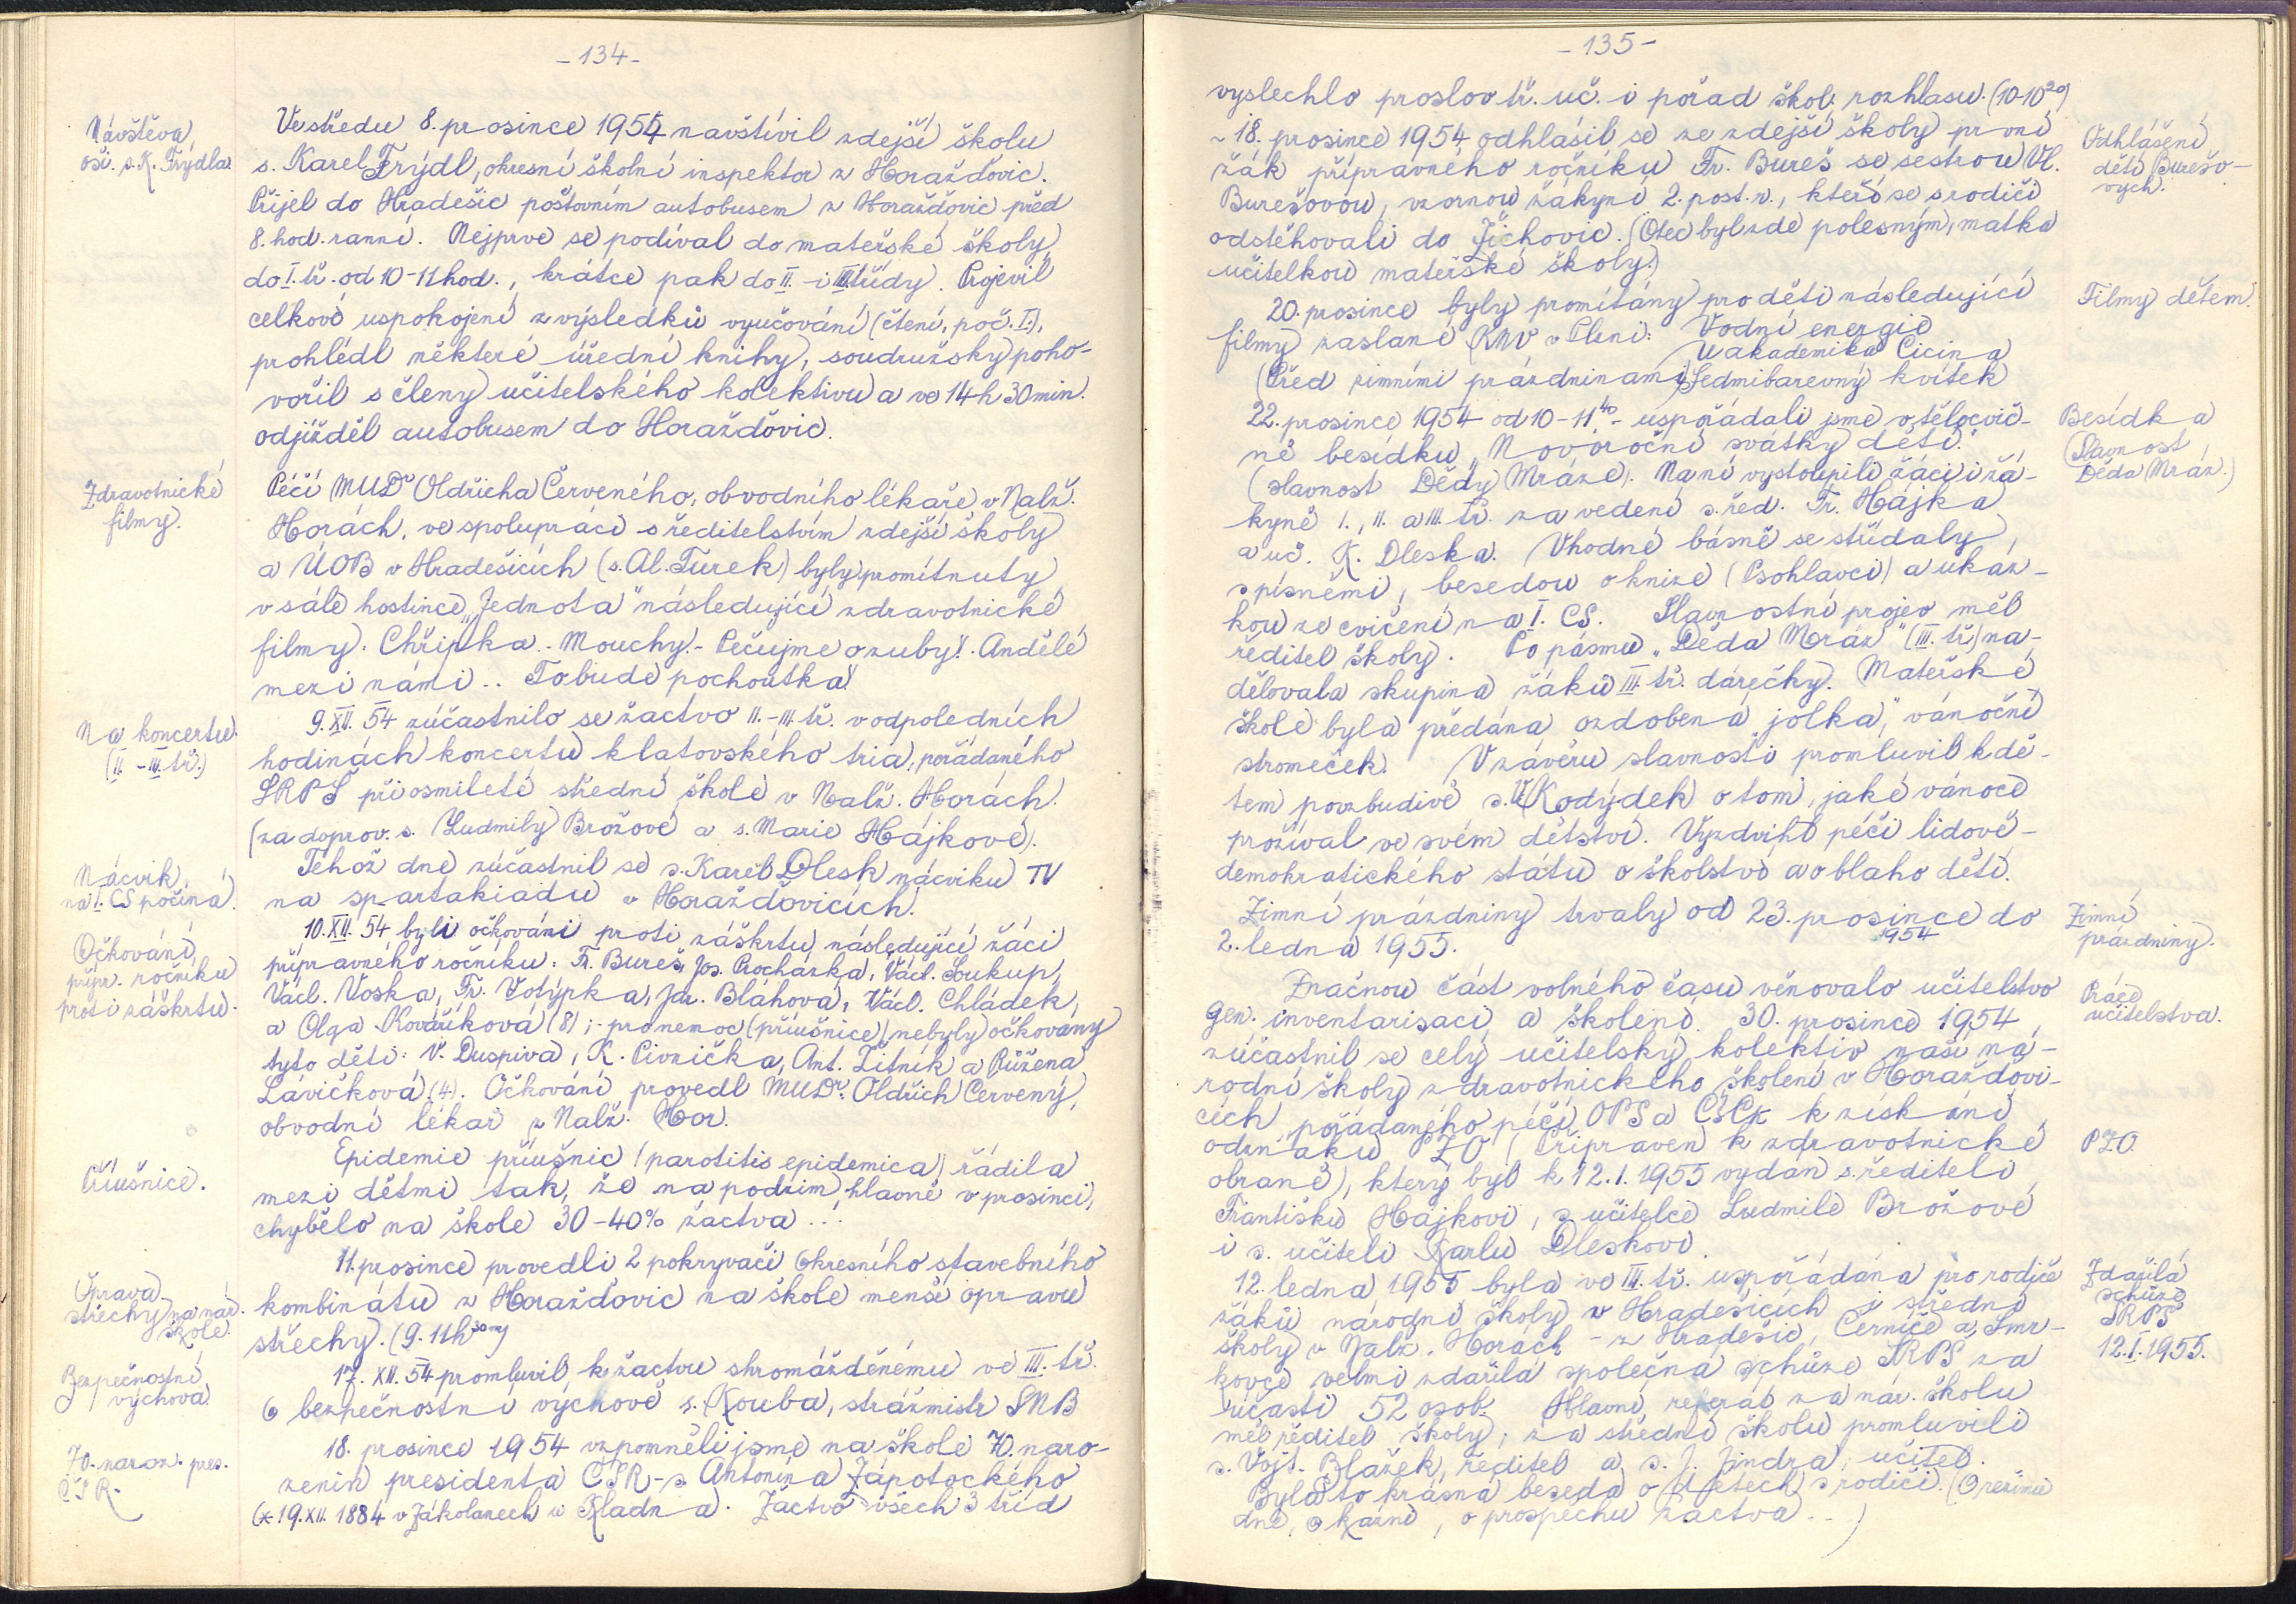 -134-
Návštěva
oši. s. K. Frýdla.
Ve středu 8. prosince 1954 navštívil zdejší školu
s. Karel Frýdl, okresní školní inspektor z Horažďovic.
Přijel do Hradešic poštovním autobusem z Horažďovic před
8. hod. ranní. Nejprve se podíval do mateřské školy,
do I. tř. od 10-11 hod., krátce pak do II. i III. třídy. Projevil
celkové uspokojení z výsledků vyučování (čtení, poč. I.),
prohlédl některé úřední knihy, soudružsky poho-
vořil s členy učitelského kolektivu a ve 14 h 30 min.
odjížděl autobusem do Horažďovic.
Zdravotnické
filmy.
Péčí MUDr Oldřicha Červeného, obvodního lékaře v Nalž.
Horách, ve spolupráci s ředitelstvím zdejší školy
a ÚOB v Hradešicích (s. Al. Turek) byly promítnuty
v sále hostince „Jednota" následující zdravotnické
filmy: Chřipka. - Mouchy. - Pečujme o zuby! - Andělé
mezi námi .. To bude pochoutka!
Na koncertu.
(II. - III. tř.)
9. XII. 54 zúčastnilo se žactvo II. - III. tř. v odpoledních
hodinách koncertu klatovského tria, pořádaného
SRPŠ při osmileté střední škole v Nalž. Horách.
(za doprov. s. Ludmily Brožové a s. Marie Hájkové).
Nácvik
na I. CS počíná.
Téhož dne zúčastnil se s. Karel Dlesk nácviku TV
na spartakiadu v Horažďovicích.
Očkování
přípr. ročníku
proti záškrtu.
10. XII. 54 byli očkováni proti záškrtu následující žáci
přípravného ročníku: Fr. Bureš, Jos. Procházka, Václ. Soukup,
Václ. Voska, Fr. Votýpka, Jar. Bláhová, Václ. Chládek,
a Olga Kovaříková (8); - pro nemoc (příušnice) nebyly očkovány
tyto děti: V. Duspiva, K. Pivnička, Ant. Žitník a Růžena
Lávičková (4). Očkování provedl MUDr. Oldřich Červený,
obvodní lékař z Nalž. Hor.
Příušnice.
Epidemie příušnic (parotitis epidemica) řádila
mezi dětmi tak, že na podzim, hlavně v prosinci,
chybělo na škole 30-40% žactva ...
Oprava
střechy na nár.
škole.
11. prosince provedli 2 pokryvači Okresního stavebního
kombinátu z Horažďovic na škole menší opravu
střechy. (9-11h 30 m)
Bezpečnostní
výchova.
17. XII. 54 promluvil k žactvu shromážděnému ve III. tř.
o bezpečnostní výchově s. Kouba, strážmistr SNB
70. naroz. pres.
ČSR.
18. prosince 1954 vzpomněli jsme na škole 70. naro-
zenin presidenta ČSR - s. Antonína Zápotockého
(* 19. XII. 1884 v Zákolanech u Kladna. Žactvo všech 3 tříd
-135-
vyslechlo proslov tř. uč. i pořad škol. rozhlasu. (10-10²⁰)
Odhlášení
dětí Burešo-
vých.
~ 18. prosince 1954 odhlásil se ze zdejší školy první
žák přípravného ročníku Fr. Bureš se sestrou Vl.
Burešovou, vzornou žákyní 2. post. r., kteří se s rodiči
odstěhovali do Žichovic. (Otec byl zde polesným, matka
učitelkou mateřské školy.)
Filmy dětem.
20. prosince byly promítány pro děti následující
filmy zaslané KNV v Plzni: Vodní energie
U akademika Cicina
(Před zimními prázdninami) Sedmibarevný kvítek
Besídka
(Slavnost
Děda Mráz.)
22. prosince 1954 od 10 - 11⁴⁰ - uspořádali jsme v tělocvič-
ně besídku „Novoroční svátky dětí."
(slavnost Dědy Mráze). Na ní vystoupili žáci i žá-
kyně I., II. a III. tř. za vedení s. řed. Fr. Hájka
a uč. K. Dleska. Vhodné básně se střídaly
s písněmi, besedou o knize (Psohlavci) a ukáz-
kou ze cvičení na I. CS. Slavnostní projev měl
ředitel školy. Po pásmu „Děda Mráz" (III. tř.) na-
dělovala skupina žáků III. tř. dárečky. Mateřské
škole byla předána ozdobená „jolka", vánoční
stromeček. V závěru slavnosti promluvil k dě-
tem povzbudivě s. V. Kodýdek o tom, jaké vánoce
prožíval ve svém dětství. Vyzdvihl péči lidově-
demokratického státu o školství a o blaho dětí.
Zimní
prázdniny.
Zimní prázdniny trvaly od 23. prosince do
1954
2. ledna 1955.
Práce
učitelstva.
Značnou část volného času věnovalo učitelstvo
gen. inventarisaci a školení. 30. prosince 1954
zúčastnil se celý učitelský kolektiv naší ná-
rodní školy zdravotnického školení v Horažďovi-
cích, pořádaného péčí OPS a ČSČK k získání
PZO
odznaku PZO (Připraven k zdravotnické
obraně), který byl k 12. I. 1955 vydán s. řediteli
Františku Hájkovi, s. učitelce Ludmile Brožové
i s. učiteli Karlu Dleskovi.
Zdařilá
schůze
SRPŠ
12. I. 1955.
12. ledna 1955 byla ve III. tř. uspořádána pro rodiče
žáků národní školy v Hradešicích i střední
školy v Nalž. Horách - z Hradešic, Černice a Smr-
kovce velmi zdařilá společná schůze SRPŠ za
účasti 52 osob. Hlavní referát za nár. školu
měl ředitel školy, za střední školu promluvili
s. Vojt. Blažek, ředitel a s. J. Jindra, učitel.
Byla to krásná beseda o dětech s rodiči. (O režimu
dne, o kázni, o prospěchu žactva ...)